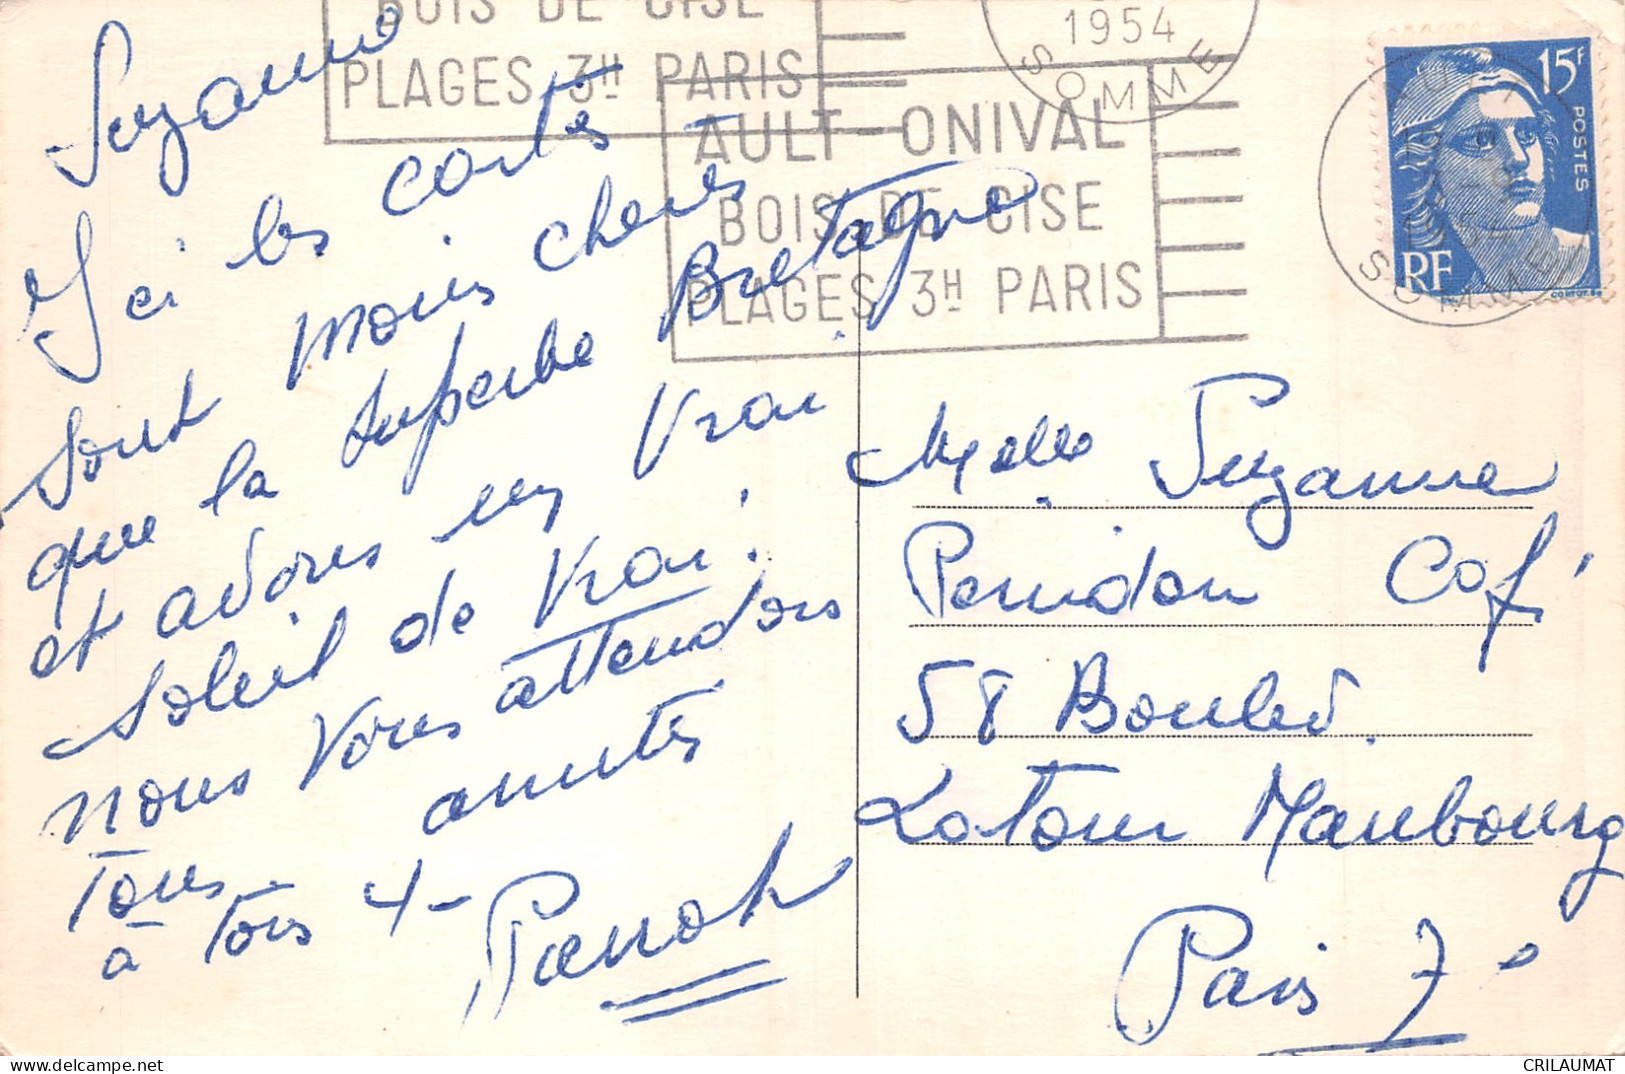 BOIS DE CISE
PLAGES 3H PARIS
1954
SOMME
AULT-ONIVAL
BOIS DE CISE
PLAGES 3H PARIS
15F
POSTES
RF
SOMME
Suzanne
Ici les cartes
sont moins cheres
que la superbe Bretagne
et avons un vrai
soleil de vrai.
nous vous attendons
tous amitiés
à tous 4-
Melle Suzanne
Café
58 Boulevd.
Latour Maubourg
Paris 7e
CRILAUMAT